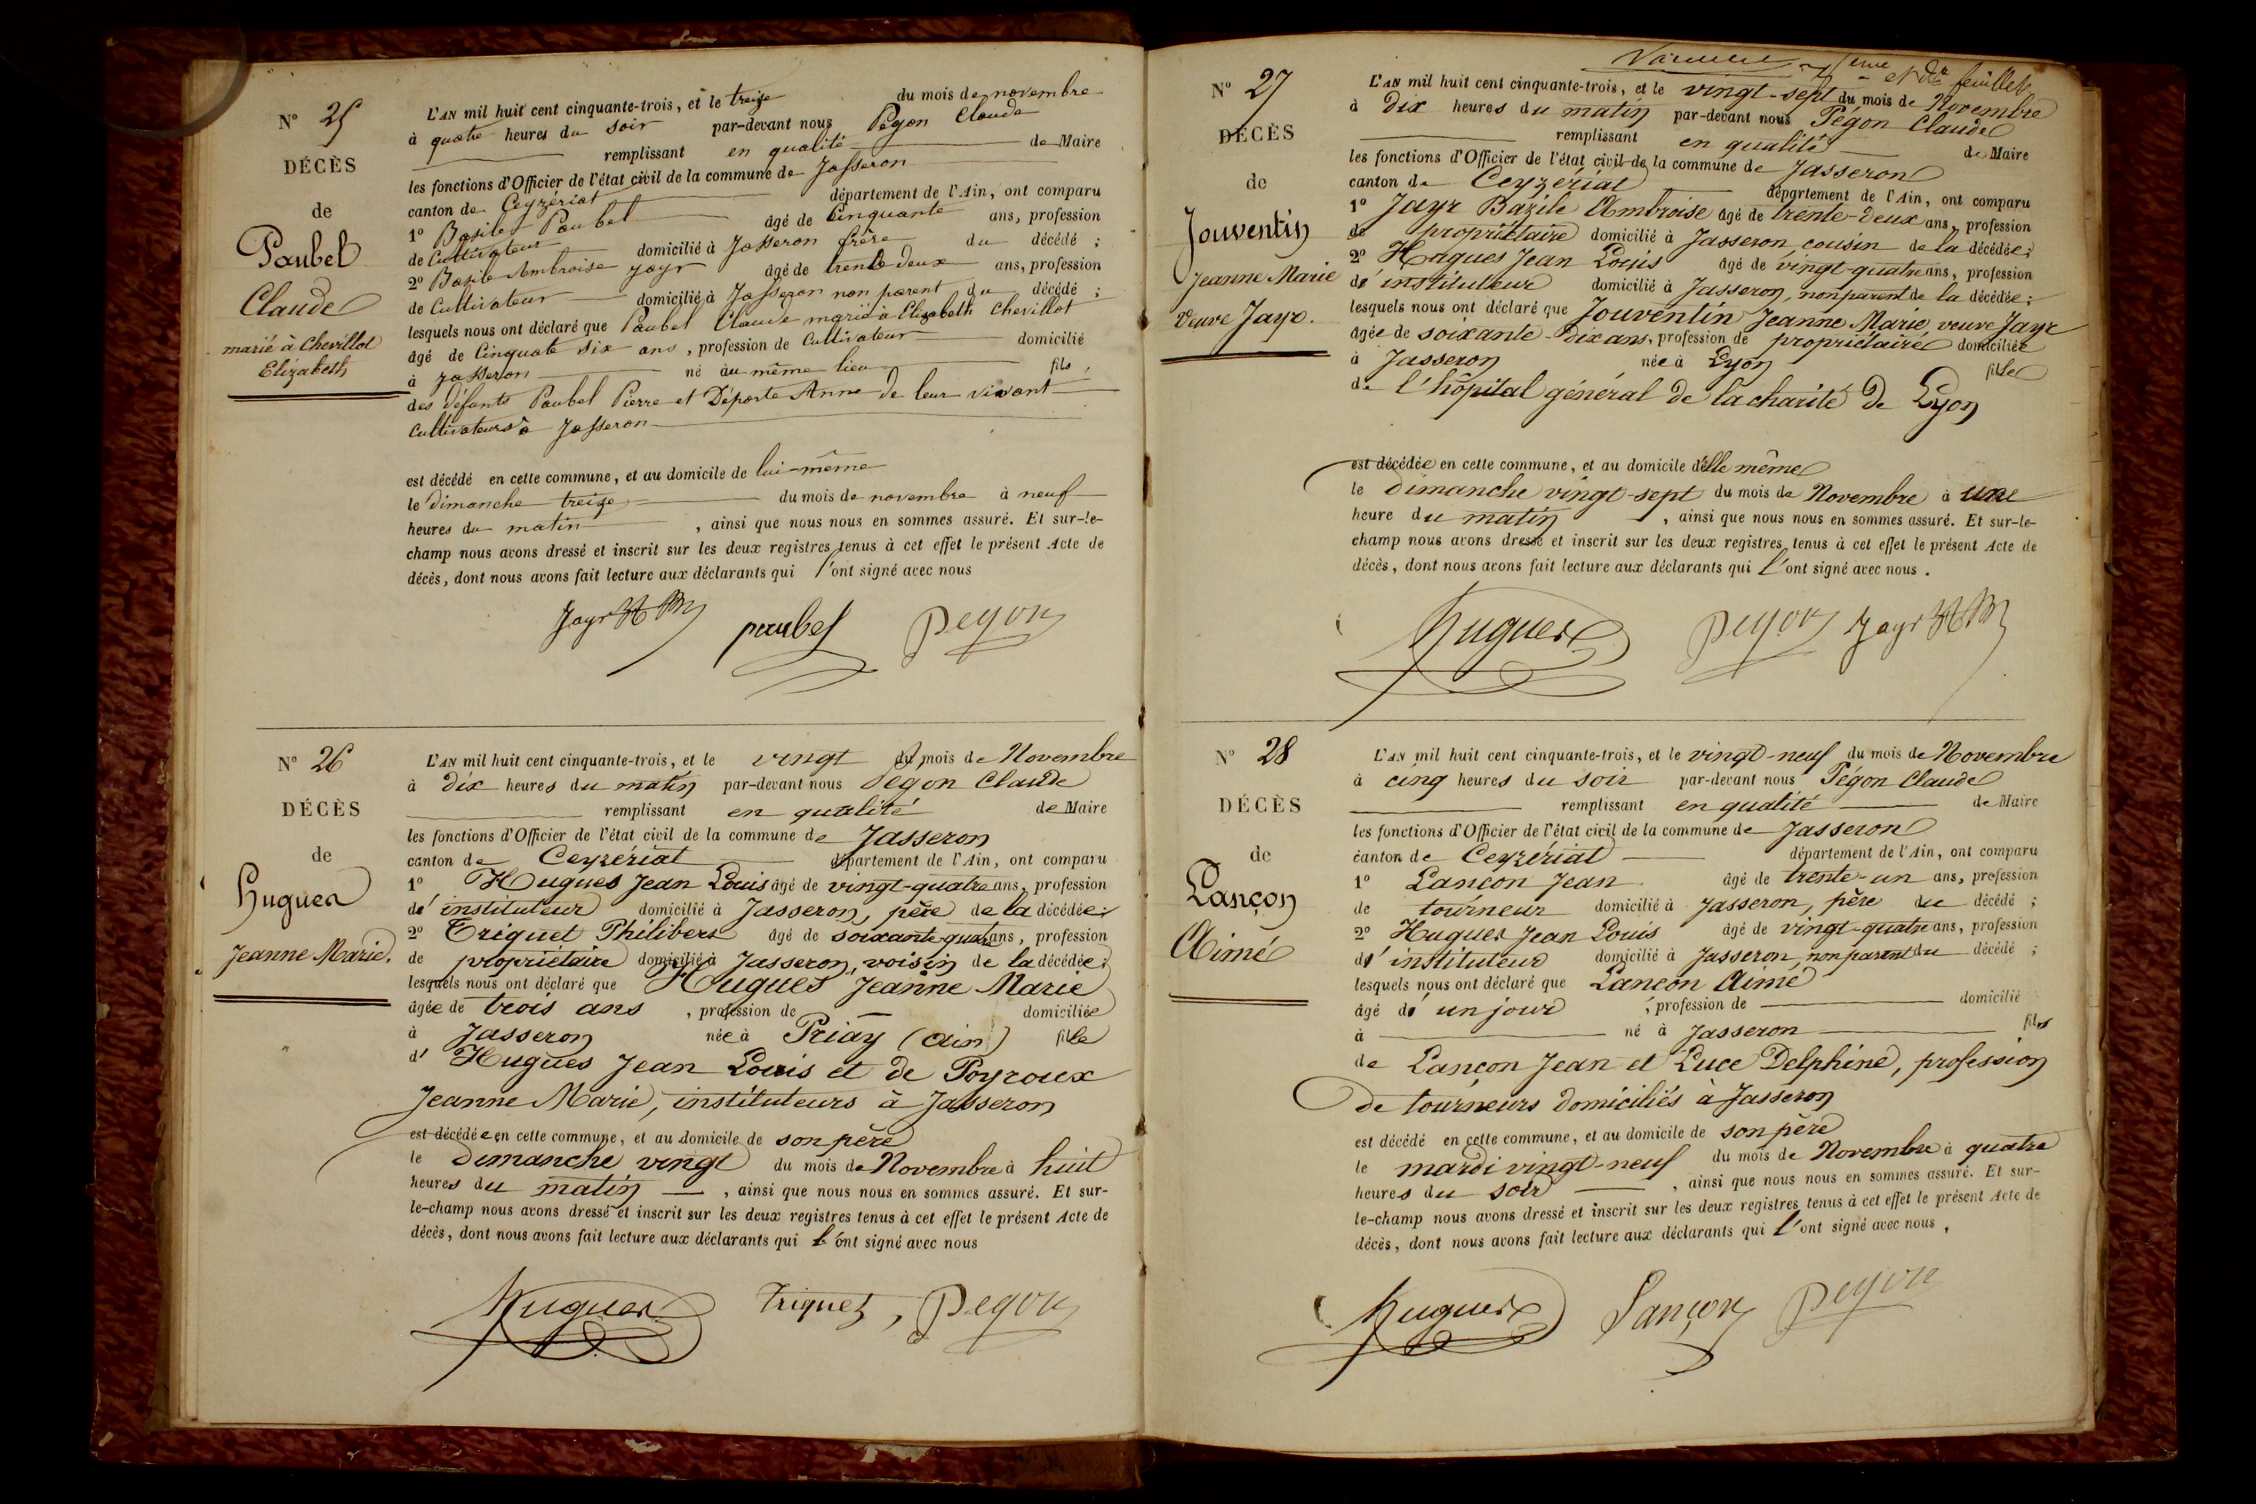 N° 25
DÉCÈS
de
Paubel
Claude
marié à Chevillot
Elizabeth
L'AN mil huit cent cinquante-trois, et le treize du mois de novembre
à quatre heures du soir par-devant nous Pégon Claude
remplissant en qualité de Maire
les fonctions d'Officier de l'état civil de la commune de Jasseron
canton de Ceyzériat département de l'Ain, ont comparu
1° Basile Paubel âgé de Cinquante ans, profession
de Cultivateur domicilié à Jasseron frère du décédé ;
2° Basile Ambroise Jayr âgé de trente deux ans, profession
de Cultivateur domicilié à Jasseron non parent du décédé ;
lesquels nous ont déclaré que Paubel Claude marié à Elizabeth Chevillot
âgé de Cinquate six ans, profession de Cultivateur domicilié
à Jasseron né au même lieu fils
des défunts Paubel Pierre et Déporte Anne de leur vivant
Cultivateurs à Jasseron
est décédé en cette commune, et au domicile de lui-même
le dimanche treize du mois de novembre à neuf
heures du matin, ainsi que nous nous en sommes assuré. Et sur-le-
champ nous avons dressé et inscrit sur les deux registres tenus à cet effet le présent Acte de
décès, dont nous avons fait lecture aux déclarants qui l'ont signé avec nous
Jayr paubel pegon
N° 26
DÉCÈS
de
Hugues
Jeanne Marie.
L'AN mil huit cent cinquante-trois, et le vingt du mois de Novembre
à dix heures du matin par-devant nous Pégon Claude
remplissant en qualité de Maire
les fonctions d'Officier de l'état civil de la commune de Jasseron
canton de Ceyzériat département de l'Ain, ont comparu
1° Hugues Jean Louis âgé de vingt-quatre ans, profession
d'instituteur domicilié à Jasseron, père de la décédée ;
2° Triquet Philibert âgé de soixante-quatre ans, profession
de propriétaire domicilié à Jasseron, voisin de la décédée ;
lesquels nous ont déclaré que Hugues Jeanne Marie
âgée de trois ans, profession de domiciliée
à Jasseron née à Priay (Ain) fille
d'Hugues Jean Louis et de Poyroux
Jeanne Marie, instituteurs à Jasseron
est décédée en cette commune, et au domicile de son père
le dimanche vingt du mois de Novembre à huit
heures du matin, ainsi que nous nous en sommes assuré. Et sur-
le-champ nous avons dressé et inscrit sur les deux registres tenus à cet effet le présent Acte de
décès, dont nous avons fait lecture aux déclarants qui l'ont signé avec nous
Hugues Triquet, pegon
feuillet
N° 27
DÉCÈS
de
Jouventin
Jeanne Marie
veuve Jayr.
L'AN mil huit cent cinquante-trois, et le vingt-sept du mois de Novembre
à dix heures du matin par-devant nous Pégon Claude
remplissant en qualité de Maire
les fonctions d'Officier de l'état civil de la commune de Jasseron
canton de Ceyzériat département de l'Ain, ont comparu
1° Jayr Bazile Ambroise âgé de trente-deux ans, profession
de propriétaire domicilié à Jasseron cousin de la décédée ;
2° Hugues Jean Louis âgé de vingt-quatre ans, profession
d'instituteur domicilié à Jasseron, non parent de la décédée ;
lesquels nous ont déclaré que Jouventin Jeanne Marie, veuve Jayr
âgée de soixante-dix ans, profession de propriétaire domiciliée
à Jasseron née à Lyon fille
de l'hôpital général de la charité de Lyon
est décédée en cette commune, et au domicile d'elle même
le dimanche vingt-sept du mois de Novembre à une
heure du matin, ainsi que nous nous en sommes assuré. Et sur-le-
champ nous avons dressé et inscrit sur les deux registres tenus à cet effet le présent Acte de
décès, dont nous avons fait lecture aux déclarants qui l'ont signé avec nous.
Hugues pegon Jayr
N° 28
DÉCÈS
de
Lançon
Aimé
L'AN mil huit cent cinquante-trois, et le vingt-neuf du mois de Novembre
à cinq heures du soir par-devant nous Pégon Claude
remplissant en qualité de Maire
les fonctions d'Officier de l'état civil de la commune de Jasseron
canton de Ceyzériat département de l'Ain, ont comparu
1° Lançon Jean âgé de trente-un ans, profession
de tourneur domicilié à Jasseron, père du décédé ;
2° Hugues Jean Louis âgé de vingt-quatre ans, profession
d'instituteur domicilié à Jasseron, non parent du décédé ;
lesquels nous ont déclaré que Lançon Aimé
âgé d'un jour, profession de domicilié
à né à Jasseron fils
de Lançon Jean et Luce Delphine, profession
de tourneurs domiciliés à Jasseron
est décédé en cette commune, et au domicile de son père
le mardi vingt-neuf du mois de Novembre à quatre
heures du soir, ainsi que nous nous en sommes assuré. Et sur-
le-champ nous avons dressé et inscrit sur les deux registres tenus à cet effet le présent Acte de
décès, dont nous avons fait lecture aux déclarants qui l'ont signé avec nous.
Hugues Lançon pegon